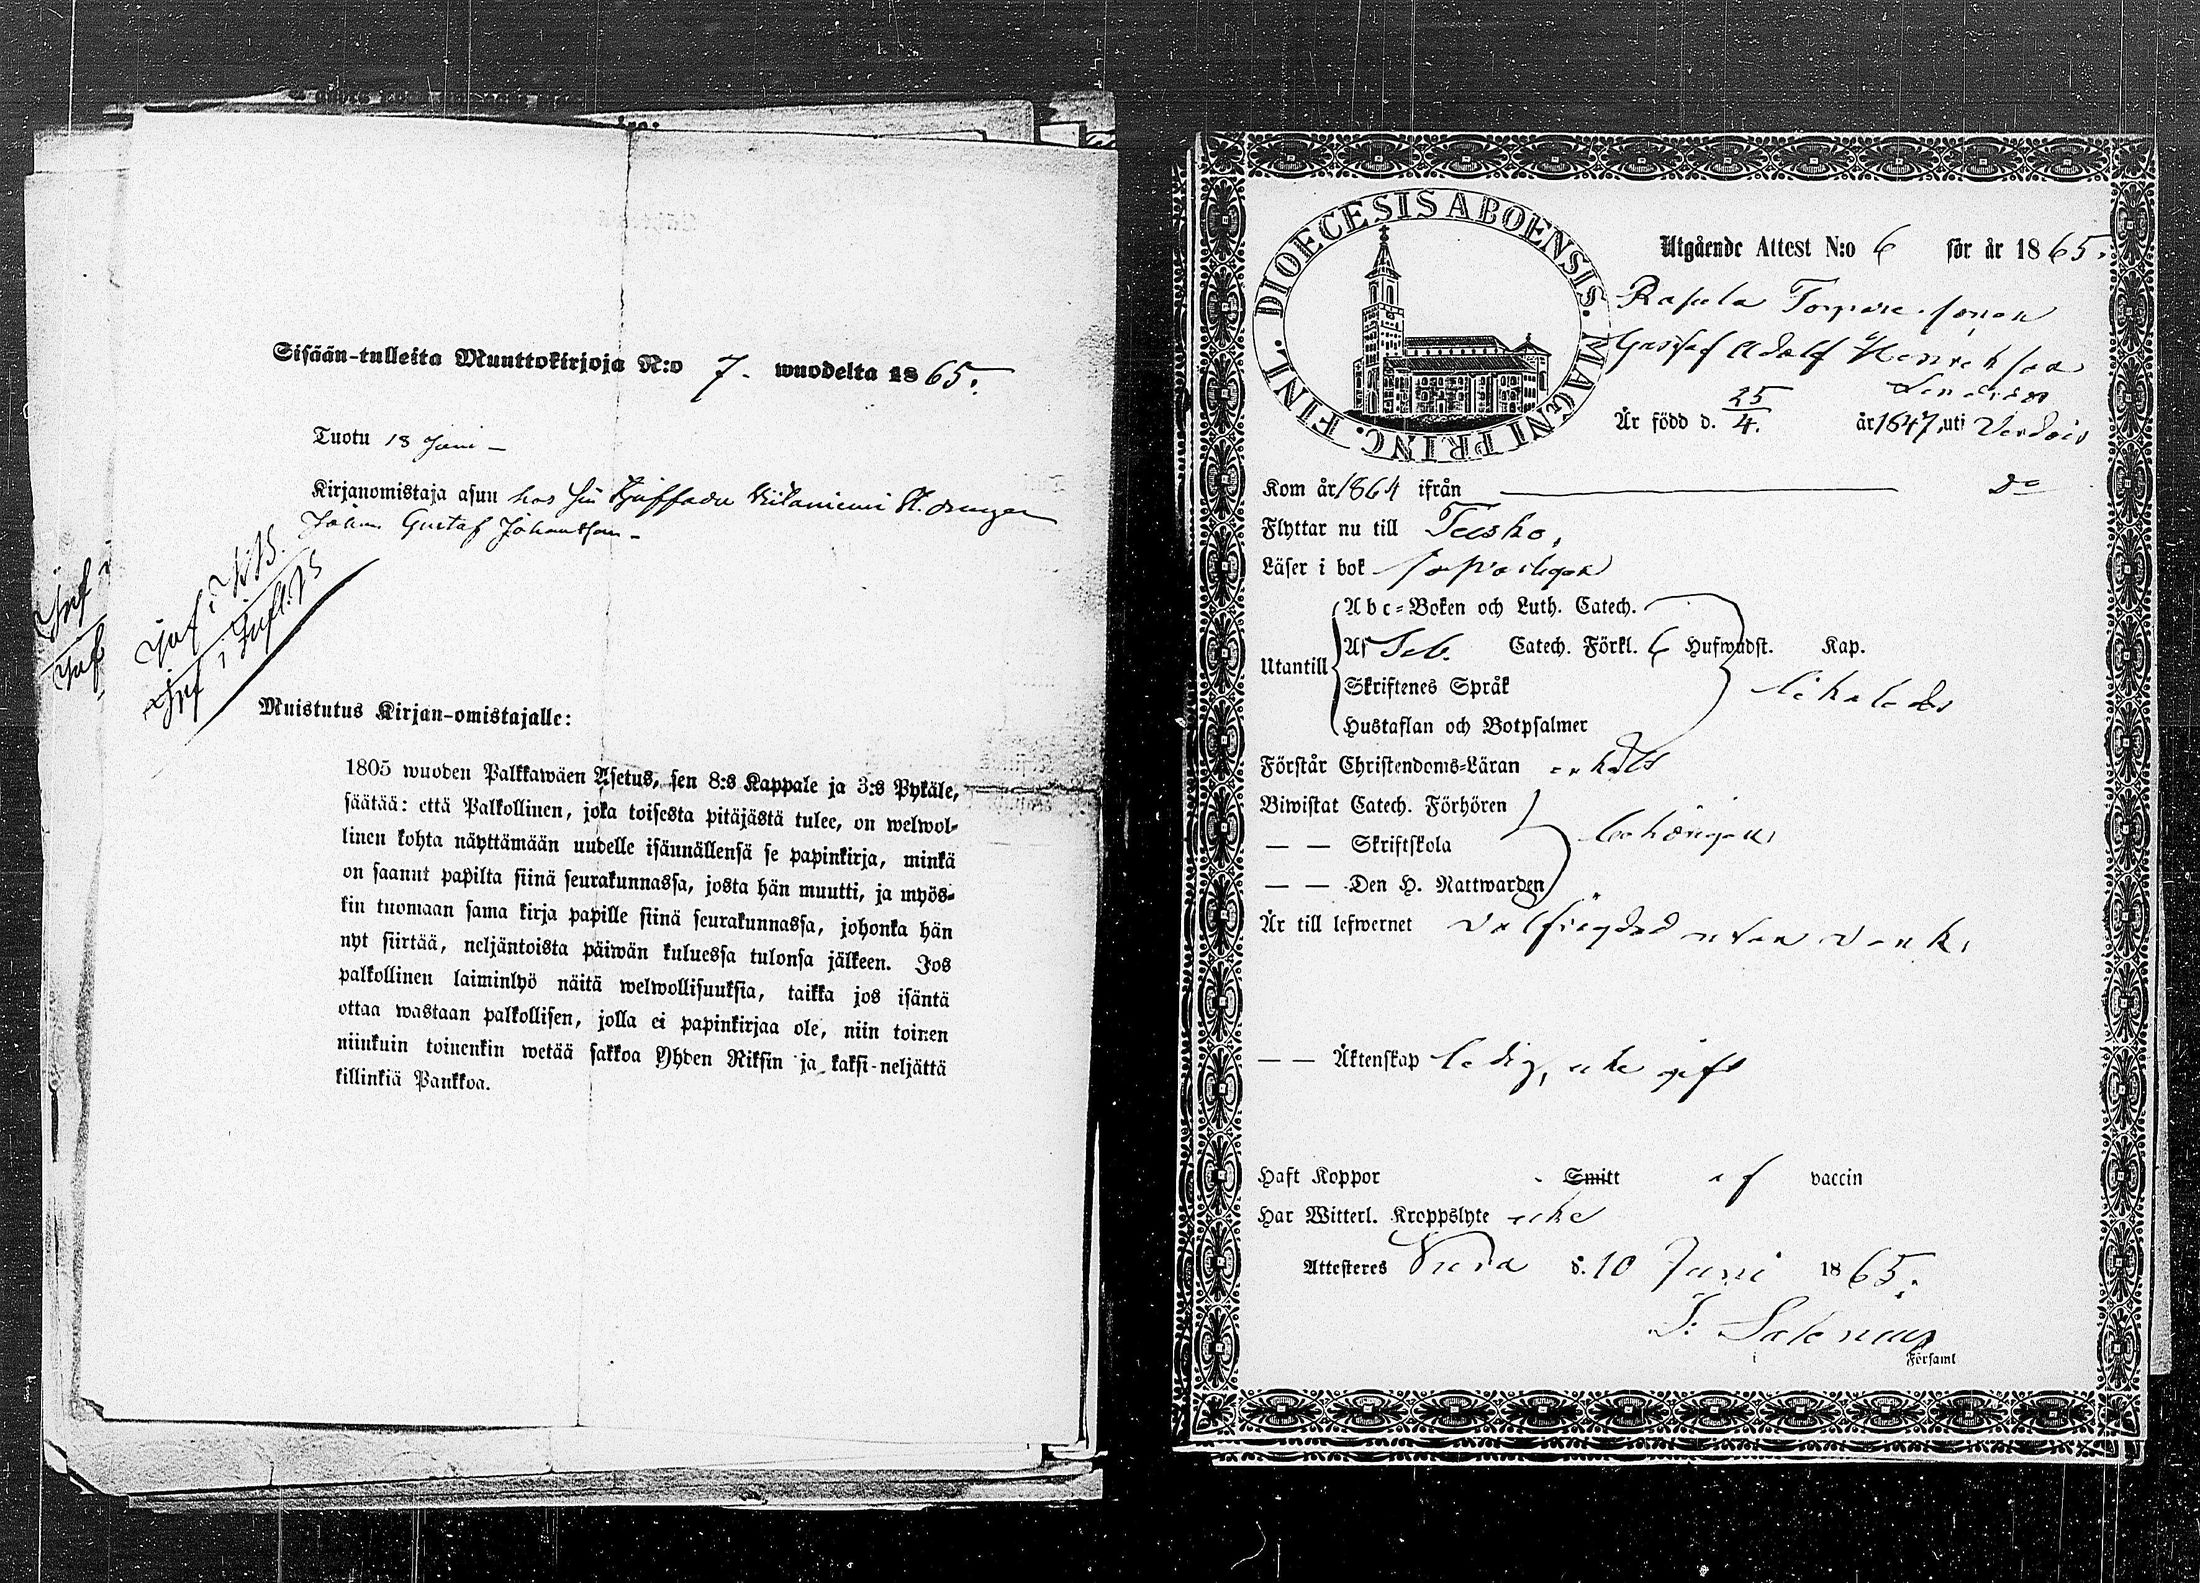 Sisään-tulleita Muuttokirjoja N:o 7. wuodelta 1865.
Tuotu 18 Juni –
Kirjanomistaja asuu hos sin
Johan Gustaf Johansson –
Muistutus Kirjan-omistajalle:
1805 wuoden Palkkawäen Asetus, sen 8:s Kappale ja 3:s Pykäle,
säätää: että Palkollinen, joka toisesta pitäjästä tulee, on welwol-
linen kohta näyttämään uudelle isännällensä se papinkirja, minkä
on saanut papilta siinä seurakunnassa, josta hän muutti, ja myös-
kin tuomaan sama kirja papille siinä seurakunnassa, johonka hän
nyt siirtää, neljäntoista päiwän kuluessa tulonsa jälkeen. Jos
palkollinen laiminlyö näitä welwollisuuksia, taikka jos isäntä
ottaa wastaan palkollisen, jolla ei papinkirjaa ole, niin toinen
niinkuin toinenkin wetää sakkoa Yhden Riksin ja kaksi-neljättä
killinkiä Pankkoa.
DIOECESIS ABOENSIS. MAGNI PRINC. FINL.
Utgående Attest N:o 6 för år 1865.
Torpare sonen
Gustaf Adolf Henriksson
Är född d. 25/4. år 1847 uti
Kom år 1864 ifrån — Do
Flyttar nu till Teisko,
Läser i bok försvarligen
Utantill
Abc-Boken och Luth. Catech.
Af Seb. Catech. Förkl. 6 Hufwudst. Kap.
Skriftenes Språk
likaledes
Hustaflan och Botpsalmer
Förstår Christendoms-Läran enkelt
Biwistat Catech. Förhören
— — Skriftskola behörigen
— — Den H. Nattwarden
Är till lefwernet välfrägdad utan vank.
— — Äktenskap ledig, icke gift
Haft Koppor Smitt af vaccin
Har Witterl. Kroppslyte icke
Attesteres d. 10 Juni 1865.
i Församl